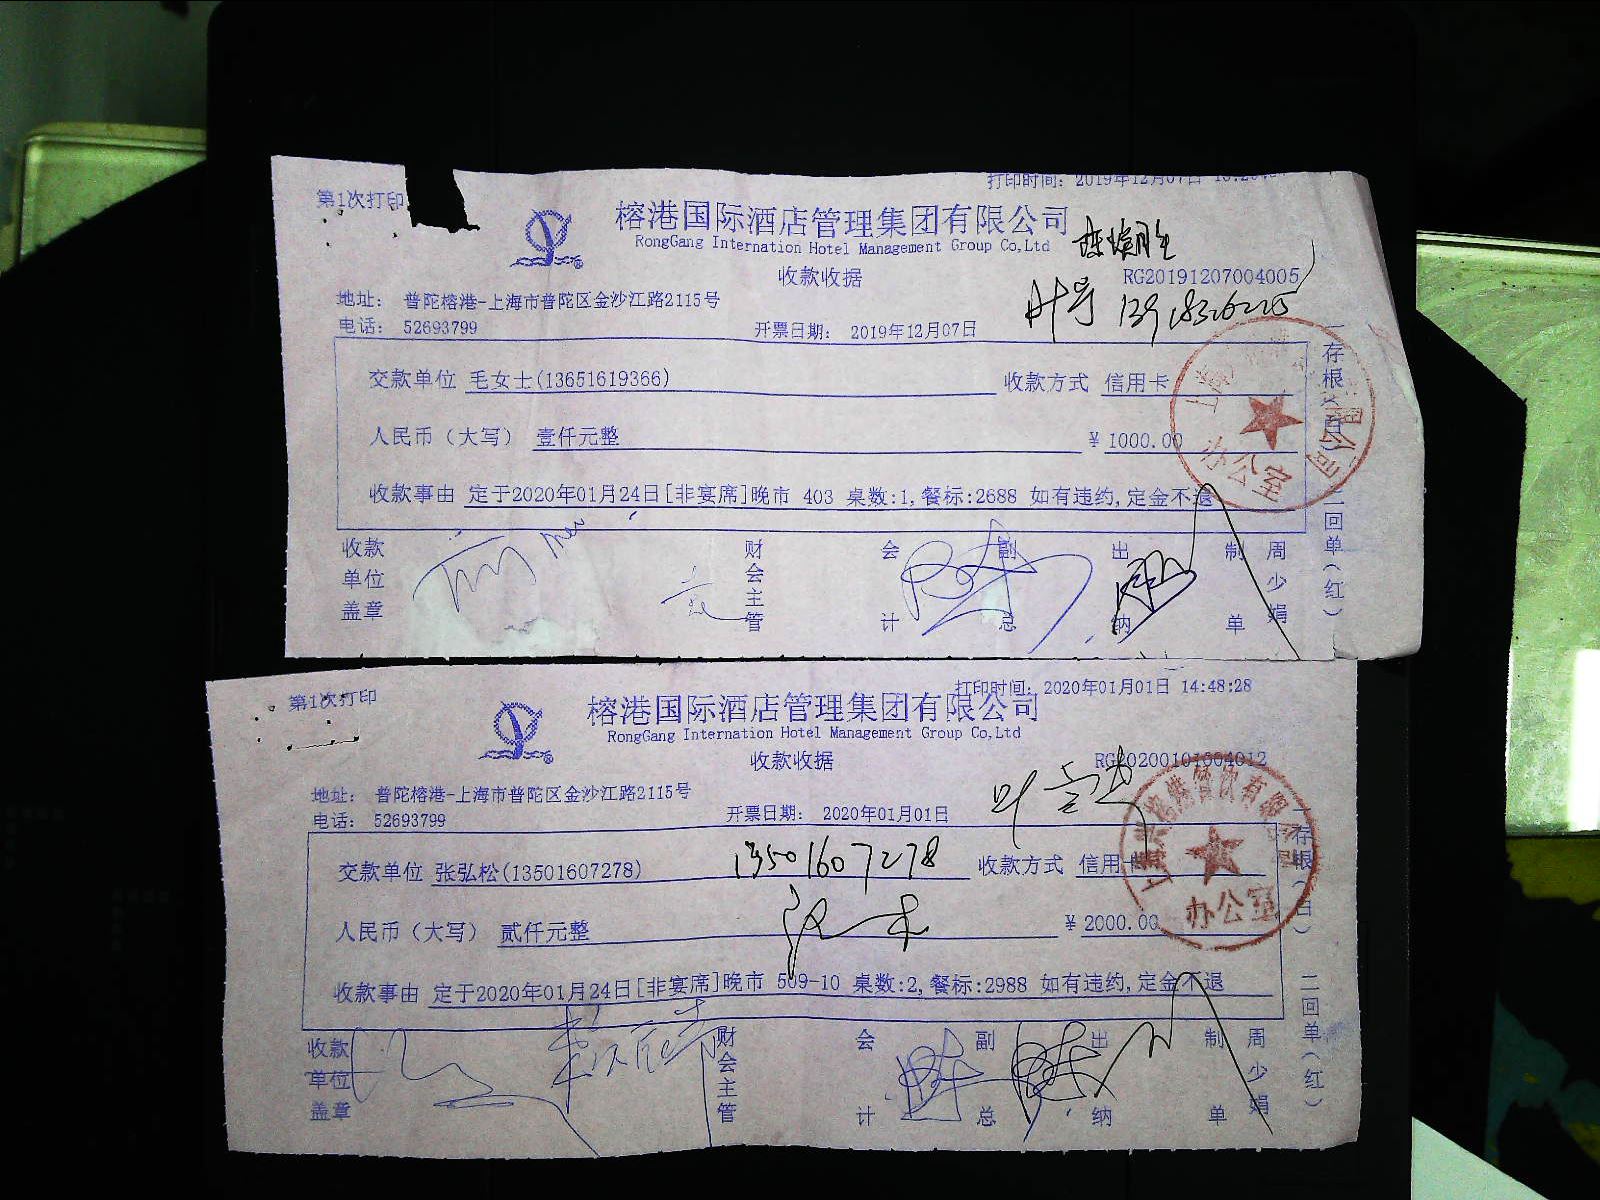 第1次打印
打印时间: 2019年12月07日
榕港国际酒店管理集团有限公司
RongGang Internation Hotel Management Group Co,Ltd
收款收据
RG20191207004005
地址: 普陀榕港-上海市普陀区金沙江路2115号
电话: 52693799
开票日期: 2019年12月07日
交款单位 毛女士(13651619366) 收款方式 信用卡
人民币(大写) 壹仟元整 ¥ 1000.00
收款事由 定于2020年01月24日[非宴席]晚市 403 桌数:1,餐标:2688 如有违约,定金不退
收款单位盖章
财会主管
会计
副总
出纳
制单
周少娟
二回单(红)
办公室
第1次打印
打印时间: 2020年01月01日 14:48:28
榕港国际酒店管理集团有限公司
RongGang Internation Hotel Management Group Co,Ltd
收款收据
RG20200101004012
地址: 普陀榕港-上海市普陀区金沙江路2115号
电话: 52693799
开票日期: 2020年01月01日
交款单位 张弘松(13501607278) 13501607278 收款方式 信用
人民币(大写) 贰仟元整 ¥ 2000.00
收款事由 定于2020年01月24日[非宴席]晚市 509-10 桌数:2,餐标:2988 如有违约,定金不退
收款单位盖章
财会主管
会计
副总
出纳
制单
周少娟
二回单(红)
办公室